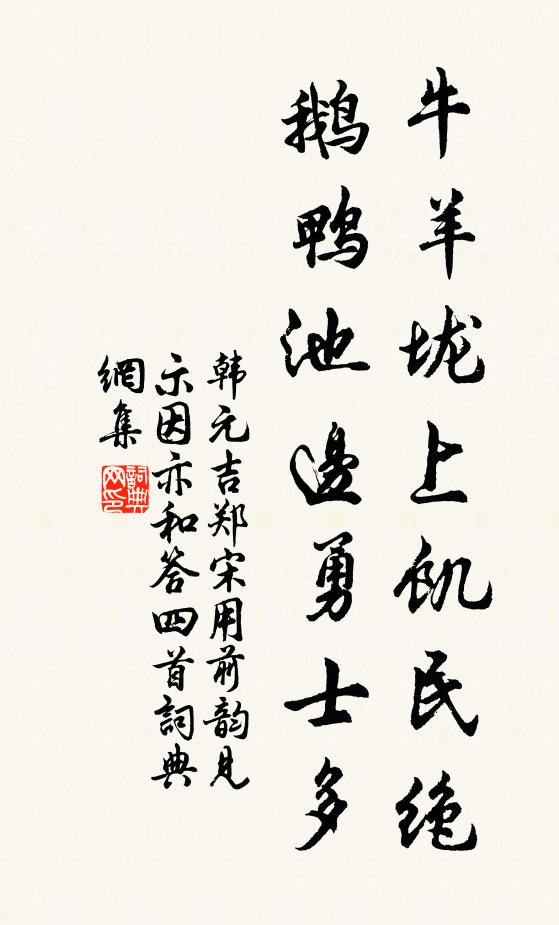 牛羊垅上飢民绝
鹅鸭池邊勇士多
韩元吉郑宋用前韵见
示因亦和答四首詞典
網集
詞典網印